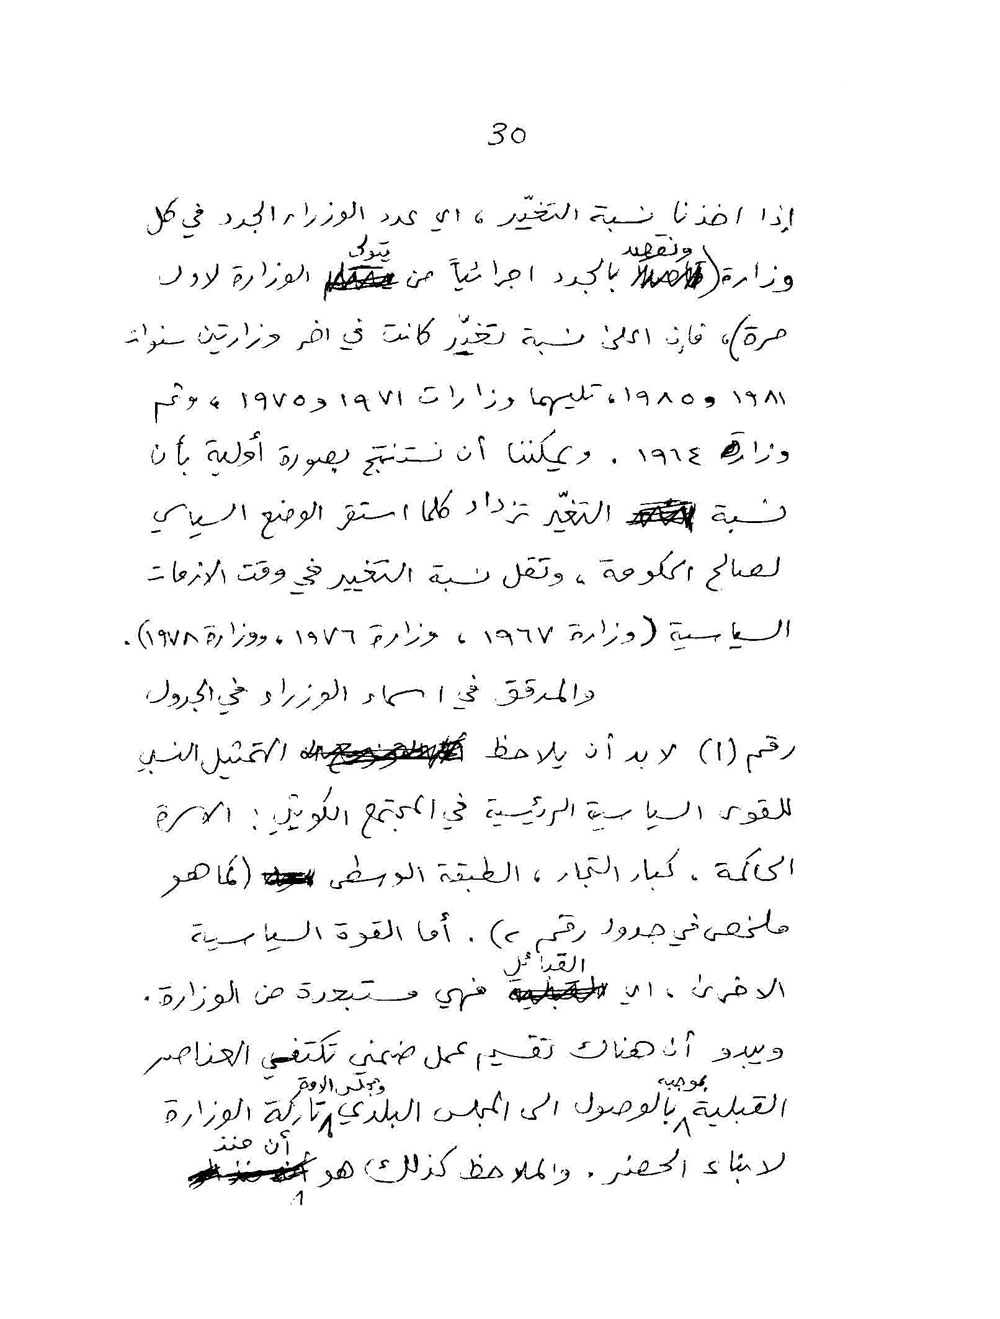 30
إذا اخذنا نسبة التغيّر ، اي عدد الوزراء الجدد في كل
ونقصد يتولى
وزارة ( بالجدد اجرائياً من الوزارة لاول
مرة) ، فإن اعلى نسبة تغيّر كانت في اخر وزارتين سنوات
١٩٨١ و ١٩٨٥ ، تليهما وزارات ١٩٧١ و ١٩٧٥ ، وثم
وزارة ١٩٦٤ . ويمكننا أن نستنتج بصورة أولية بأن
نسبة التغيّر تزداد كلما استقر الوضع السياسي
لصالح الحكومة ، وتقل نسبة التغيير في وقت الازمات
السياسية (وزارة ١٩٦٧ ، وزارة ١٩٧٦ ، ووزارة ١٩٧٨) .
والمدقق في اسماء الوزراء في الجدول
رقم (١) لا بد أن يلاحظ التمثيل النسبي
للقوى السياسية الرئيسية في المجتمع الكويتي : الاسرة
الحاكمة . كبار التجار ، الطبقة الوسطى (كما هو
ملخص في جدول رقم ٢) . أما القوة السياسية
القبائل
الاخرى ، اي فهي مستبعدة من الوزارة .
ويبدو أن هناك تقسيم عمل ضمني تكتفي العناصر
بموجبه ومجلس الامة
القبلية بالوصول الى المجلس البلدي تاركة الوزارة
أن منذ
لابناء الحضر . والملاحظ كذلك هو